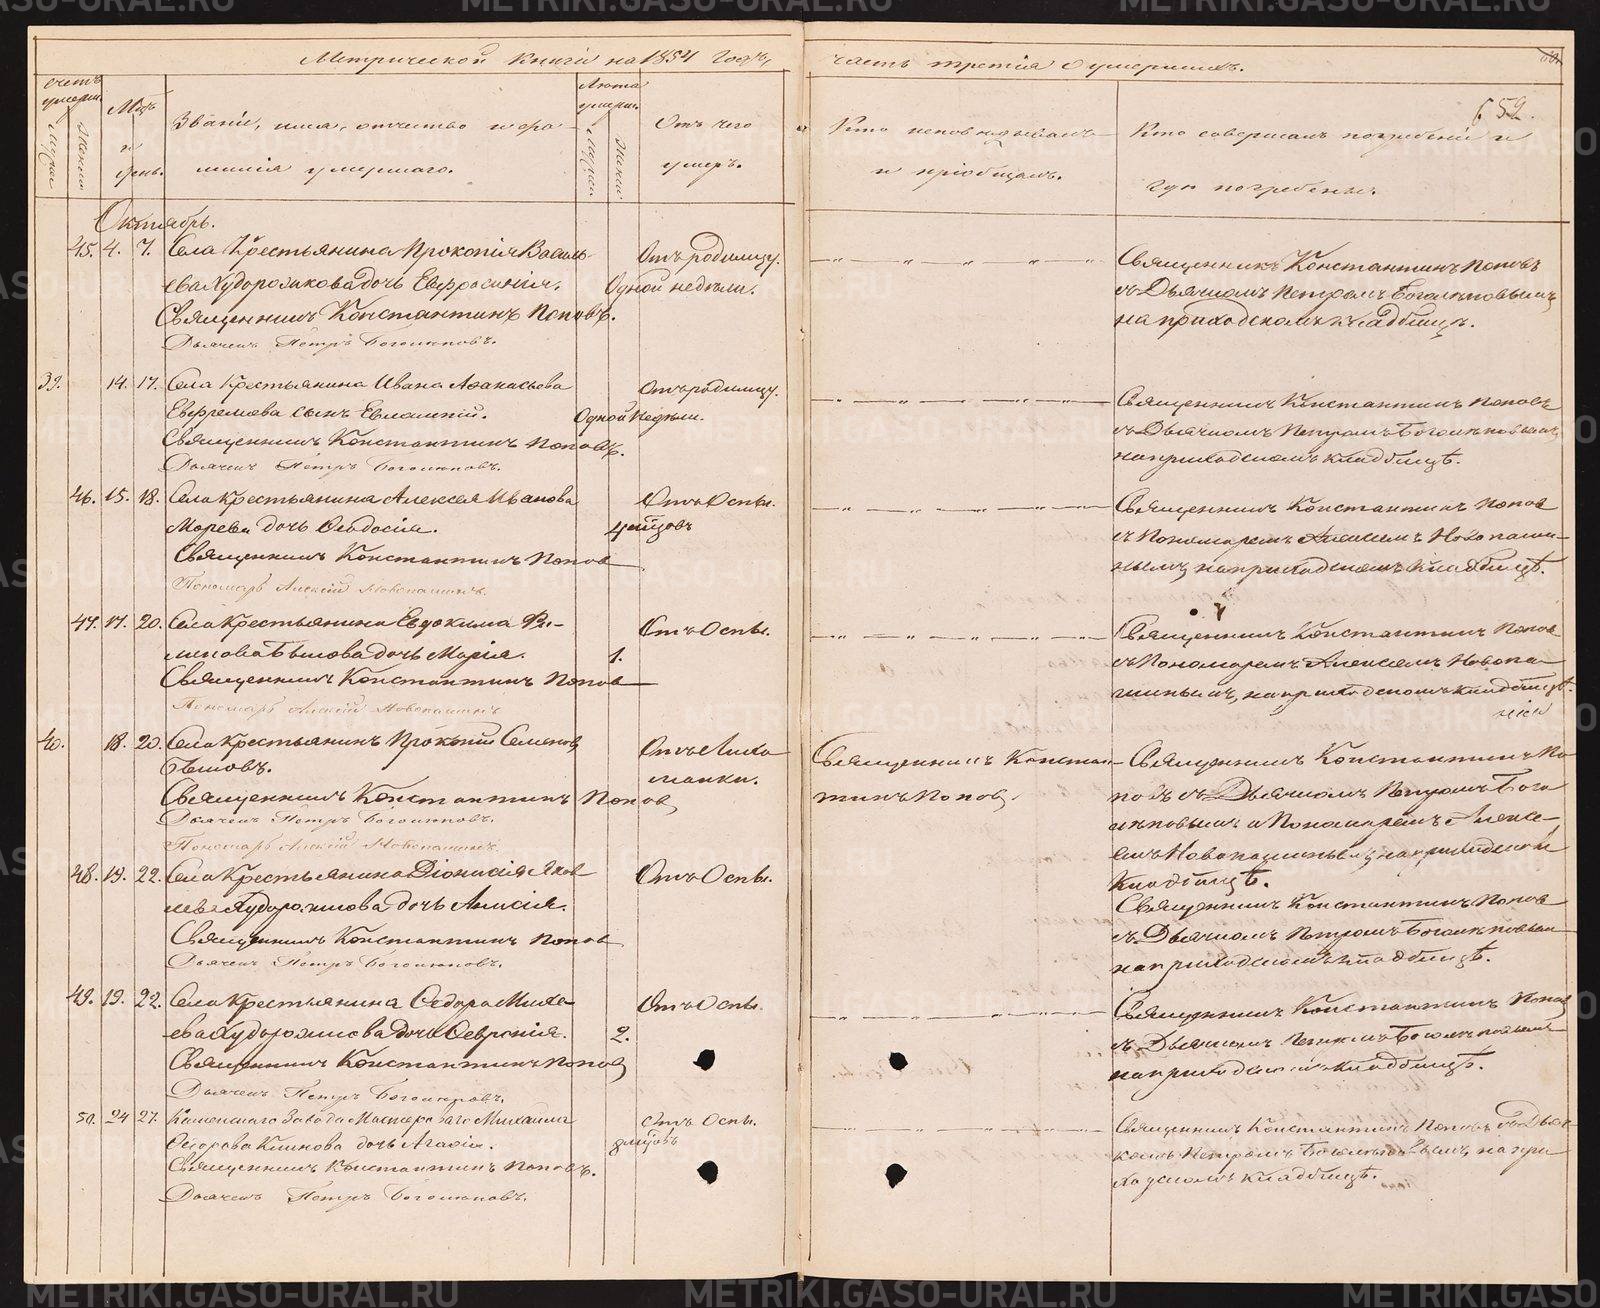 Метрической книги на 1854 годъ,
часть третія о умершихъ.
652.
Счетъ умерш.
Мужеск
Женска
Мѣц. и день.
Званіе, имя, отчество и фа-
милія умершаго.
Лѣта умерш.
Мужеск
Женск
Отъ чего
умеръ.
Кто исповѣдывалъ
и пріобщалъ.
Кто совершалъ погребеніе и
гдѣ погребены.
Октябрь.
45. 4. 7. Села Крестьянина Прокопія Василь-
ева Худорожкова дочь Евфросинія.
Одной недѣли.
Отъ родимцу.
Священникъ Константинъ Поповъ.
Дьячекъ Петръ Боголюповъ.
Священникъ Константинъ Поповъ
съ Дьячкомъ Петромъ Боголѣповымъ
на приходскомъ кладбищѣ.
39. 14. 17. Села Крестьянина Ивана Аѳанасьева
Евфремова сынъ Евлампій.
Одной недѣли.
Отъ родимцу.
Священникъ Константинъ Поповъ.
Дьячекъ Петръ Боголюповъ.
Священникъ Константинъ Поповъ
съ Дьячкомъ Петромъ Боголѣповымъ
на приходскомъ кладбищѣ.
46. 15. 18. Села Крестьянина Алексея Иванова
Морева дочь Ѳеодосія.
Отъ Оспы.
Священникъ Константинъ Попов
Пономарь Алексій Новопашинъ.
Священникъ Константинъ Попов
съ Пономаремъ Алексемъ Новопаши-
нымъ на приходскомъ кладбищѣ.
47. 17. 20. Села Крестьянина Евдокима
дочь Марія.
1.
Отъ Оспы.
Священникъ Константинъ Попов
Пономарь Алексій Новопашинъ
Священникъ Константинъ Попов
съ Пономаремъ Алексемъ Новопа-
шинымъ, на приходскомъ кладбищѣ.
40. 18. 20. Села Крестьянинъ Прокопій Семенов
Отъ Лихо
манки.
Священникъ Константинъ Попов
Дьячекъ Петръ Боголюповъ.
Пономарь Алексій Новопашинъ.
Священникъ Констан-
тинъ Попов.
Священникъ Константинъ По
повъ съ Дьячкомъ Петромъ Бого
лѣповымъ и Пономаремъ Алексе-
емъ Новопашинымъ на приходском
кладбищѣ.
48. 19. 22. Села Крестьянина Діонисія Яков
лева Худорожкова дочь Анисія.
Отъ Оспы.
Священникъ Константинъ Попов
Дьячекъ Петръ Боголюповъ.
Священникъ Константинъ Попов
съ Дьячкомъ Петромъ Боголѣповым
на приходскомъ кладбищѣ.
49. 19. 22. Села Крестьянина Ѳедора Михе-
ева Худорожкова дочь Февронія.
2.
Отъ Оспы.
Священникъ Константинъ Попов
Дьячекъ Петръ Боголюповъ.
Священникъ Константинъ Попов
съ Дьячкомъ Петромъ Боголѣповымъ
на приходскомъ кладбищѣ.
50. 24 27. Каменскаго Завода Мастероваго Михаила
дочь Агафія.
Отъ Оспы.
Священникъ Константинъ Поповъ.
Дьячекъ Петръ Боголюповъ.
Священникъ Константинъ Поповъ съ Дьяч-
комъ Петромъ Боголѣповымъ, на при
ходскомъ кладбищѣ.
METRIKI.GASO-URAL.RU